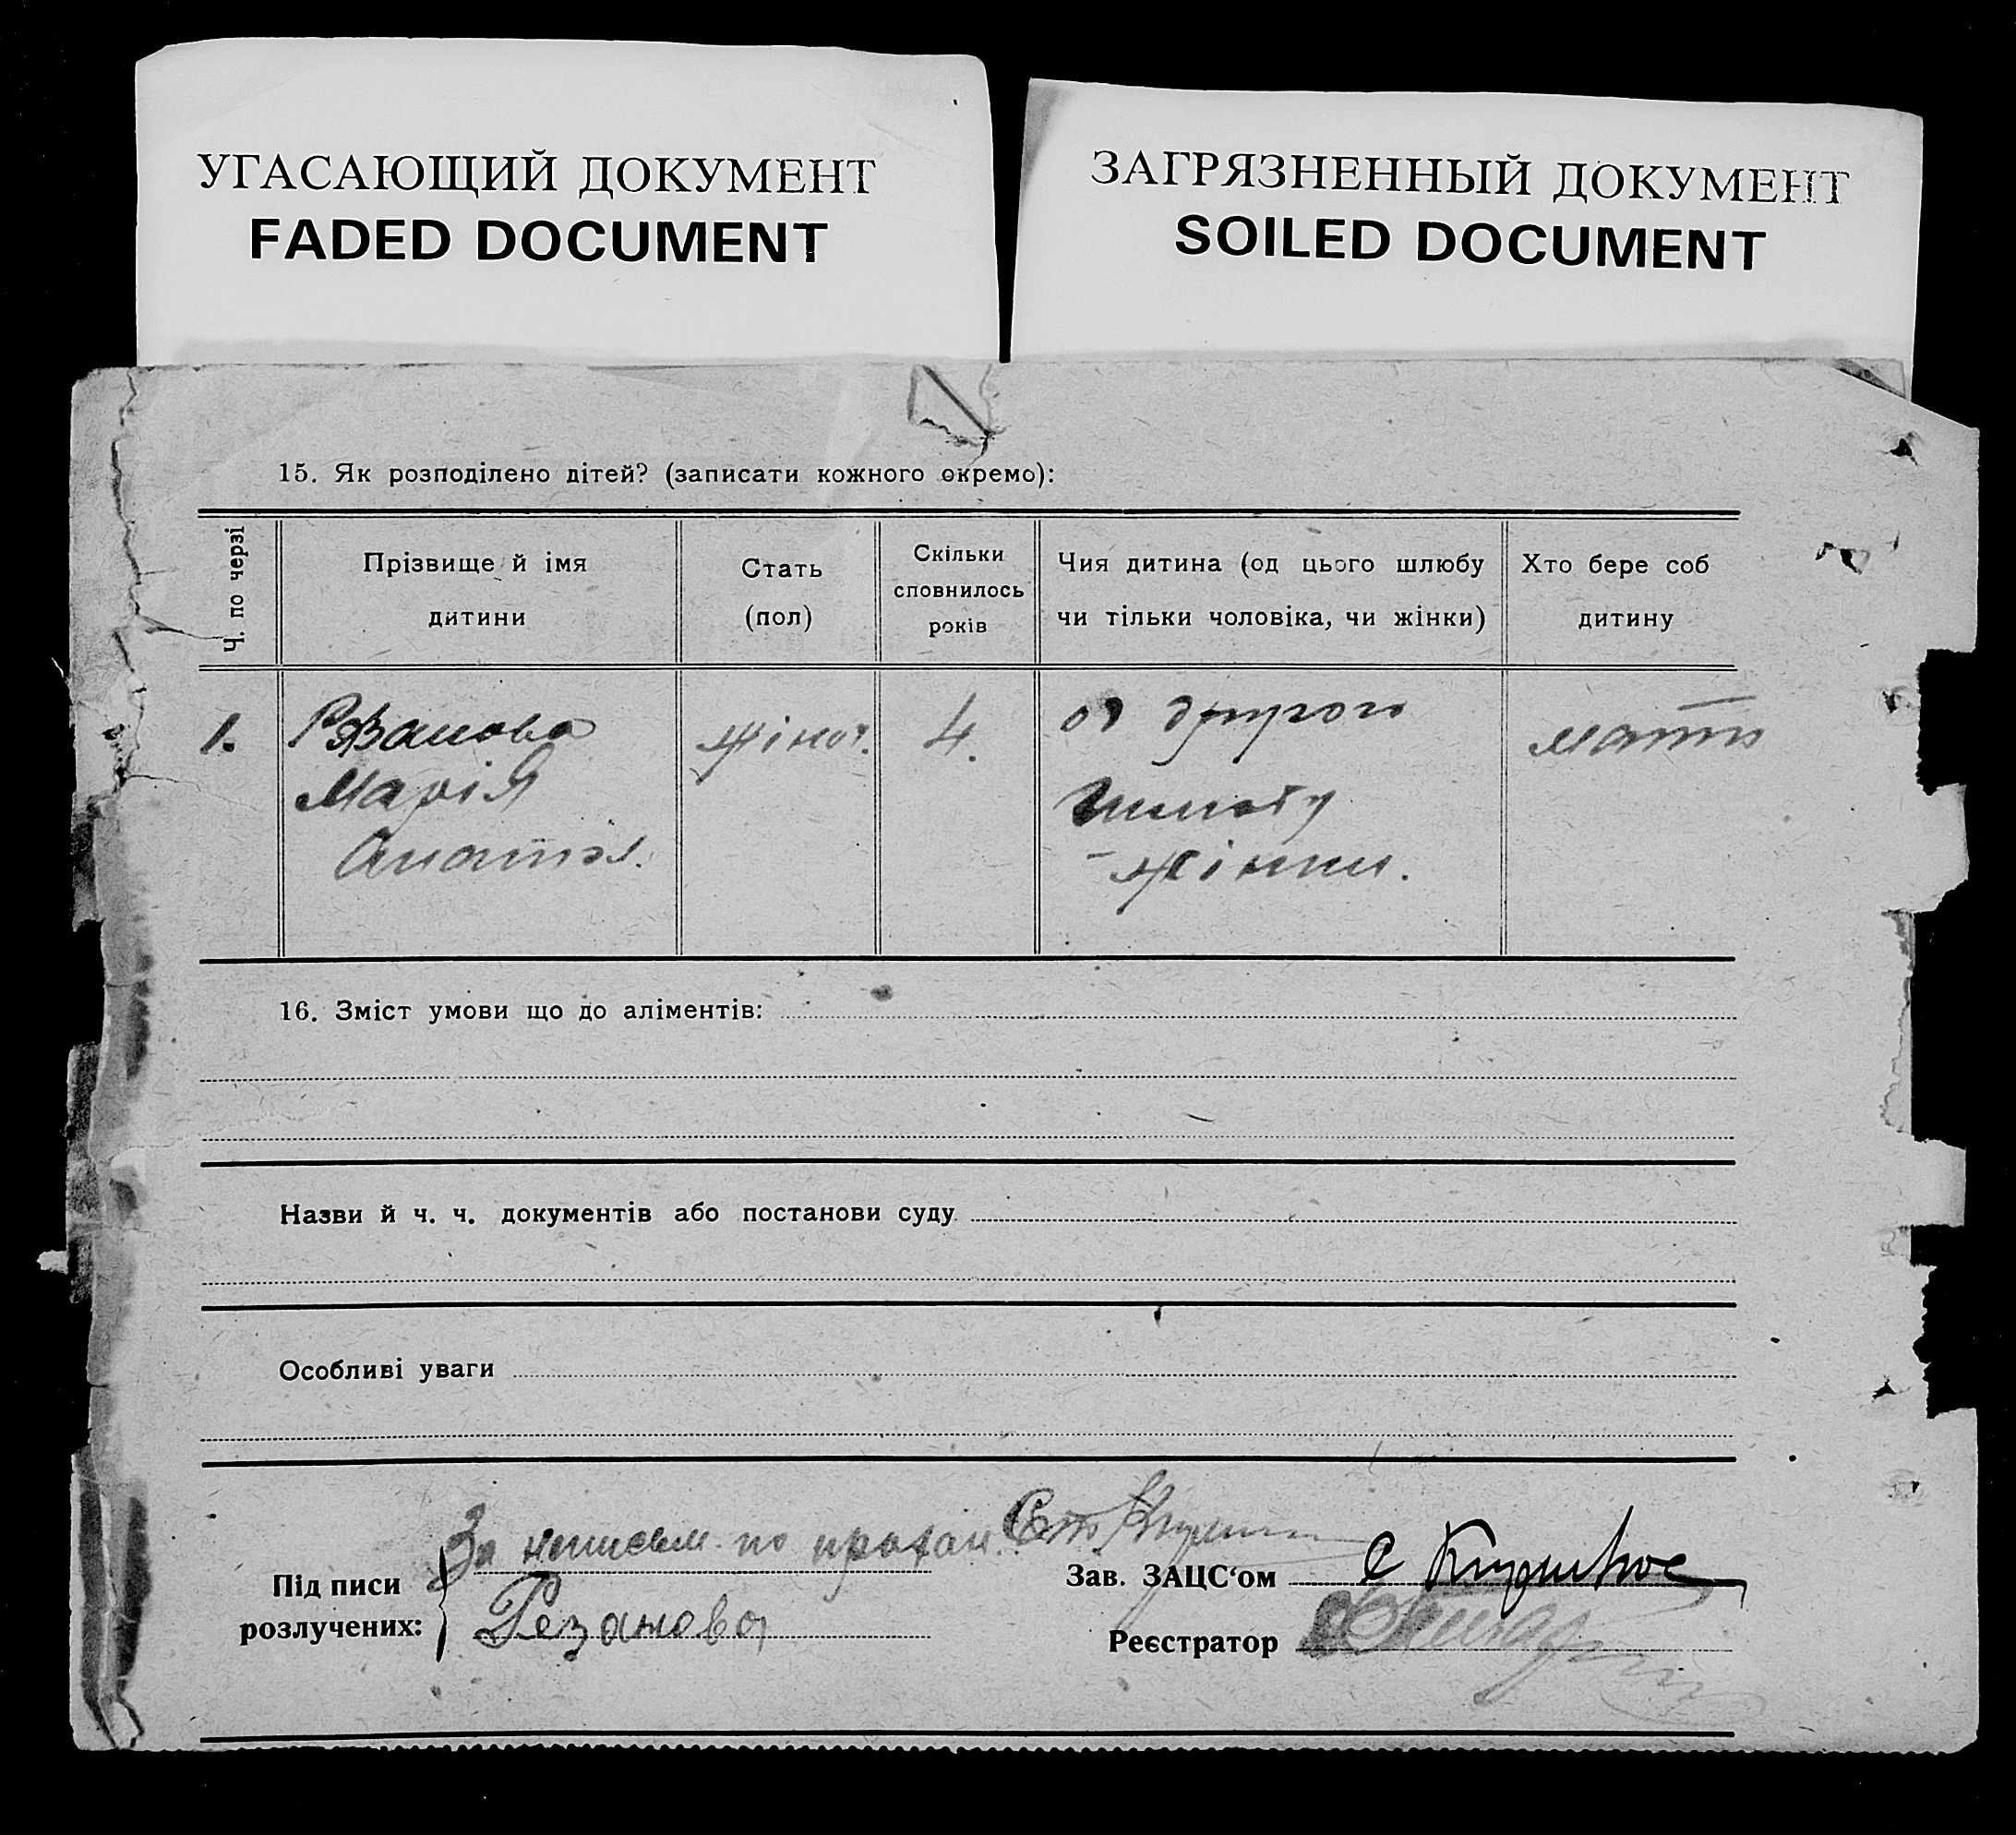 УГАСАЮЩИЙ ДОКУМЕНТ
FADED DOCUMENT
ЗАГРЯЗНЕННЫЙ ДОКУМЕНТ
SOILED DOCUMENT
15. Як розподілено дітей? (записати кожного окремо):
Ч. по черзі
Прізвище й імя
дитини
Стать
(пол)
Скільки
сповнилось
років
Чия дитина (од цього шлюбу
чи тільки чоловіка, чи жінки)
Хто бере соб
дитину
1.
Марія
жіноч.
4.
од другого
шлюбу
жінки.
мати
16. Зміст умови що до аліментів:
Назви й ч. ч. документів або постанови суду
Особливі уваги
Під писи
розлучених:
За неписьм. по прохан.
Резанова
Зав. ЗАЦС‘ом
Реєстратор